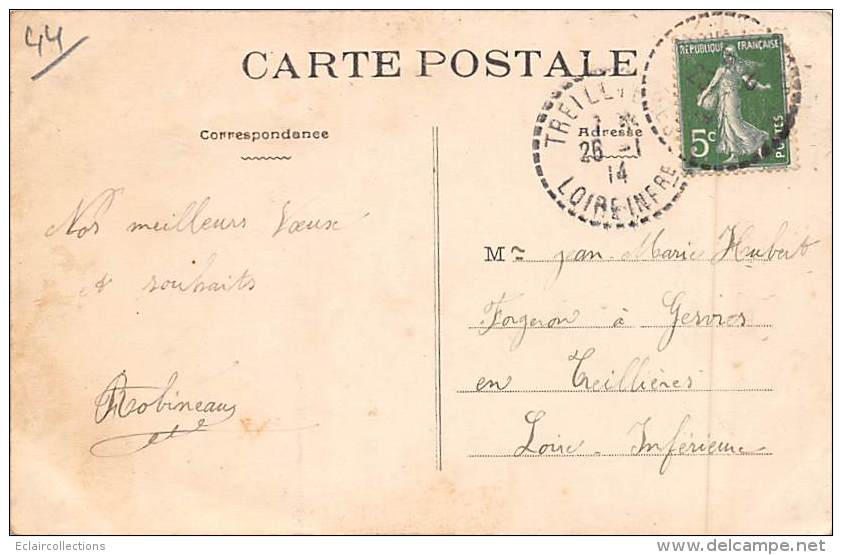 44
CARTE POSTALE
Correspondance
Adresse
RÉPUBLIQUE FRANÇAISE
5c
POSTES
TREILL
26 -1
14
LOIRE INFRE
Nos meilleurs voeux
et souhaits
Robineau
Mr Jean-Marie Hubert
Forgeron à Gesvres
en Treillières
Loire-Inférieure
Eclaircollections
delcampe.net